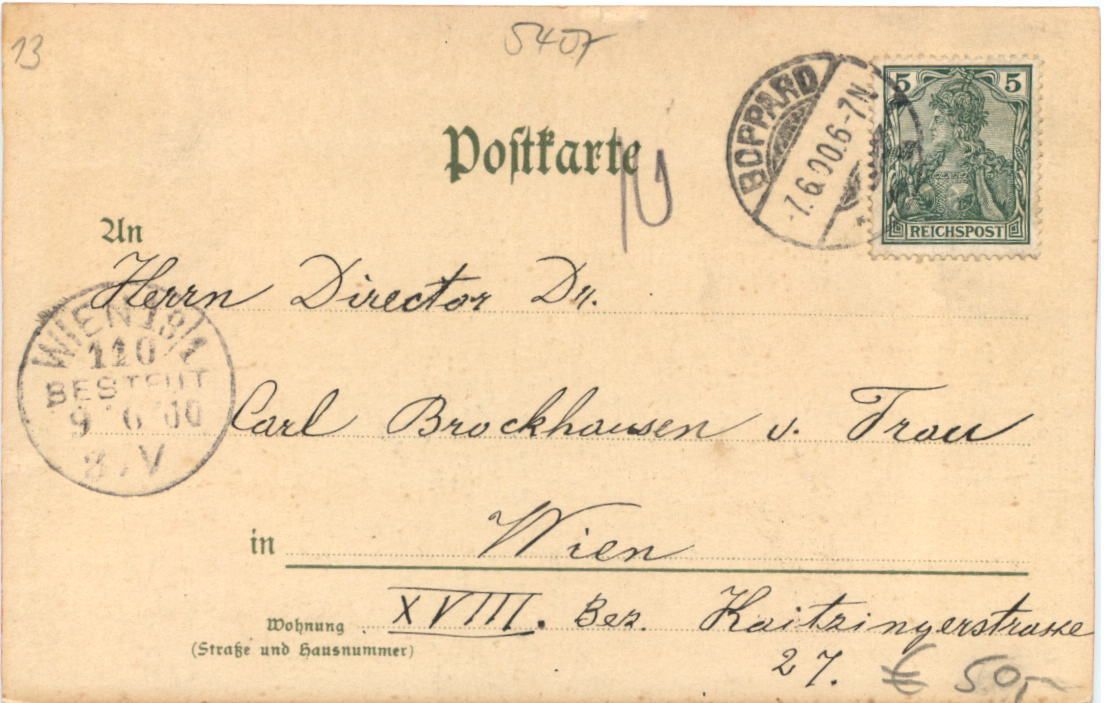 13
5407
5 5
BOPPARD
7.6.00.6-7N.
REICHSPOST
Postkarte
An
Herrn Director Dr.
WIEN 18/1
110
BESTELLT
9 6 00
8. V
Carl Brockhausen u. Frau
in Wien
Wohnung XVIII. Bez. Kaitzingerstrasse
(Straße und Hausnummer)
27.
€ 50,-